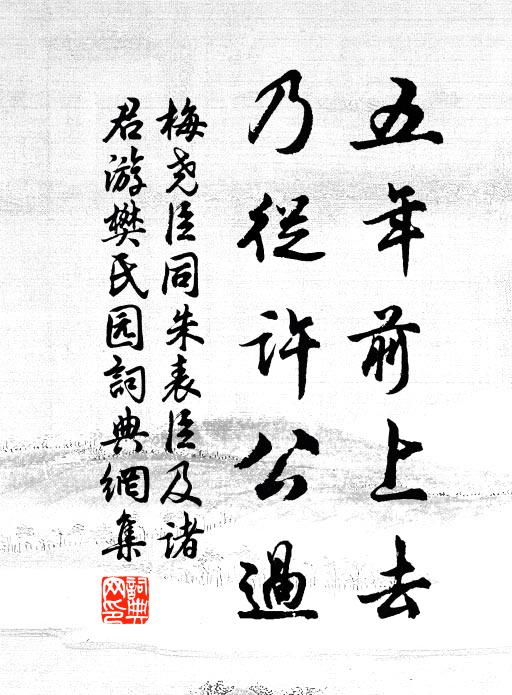 五年前上去
乃從許公過
梅尧臣同朱表臣及诸
君游樊氏园詞典網集
詞典网印